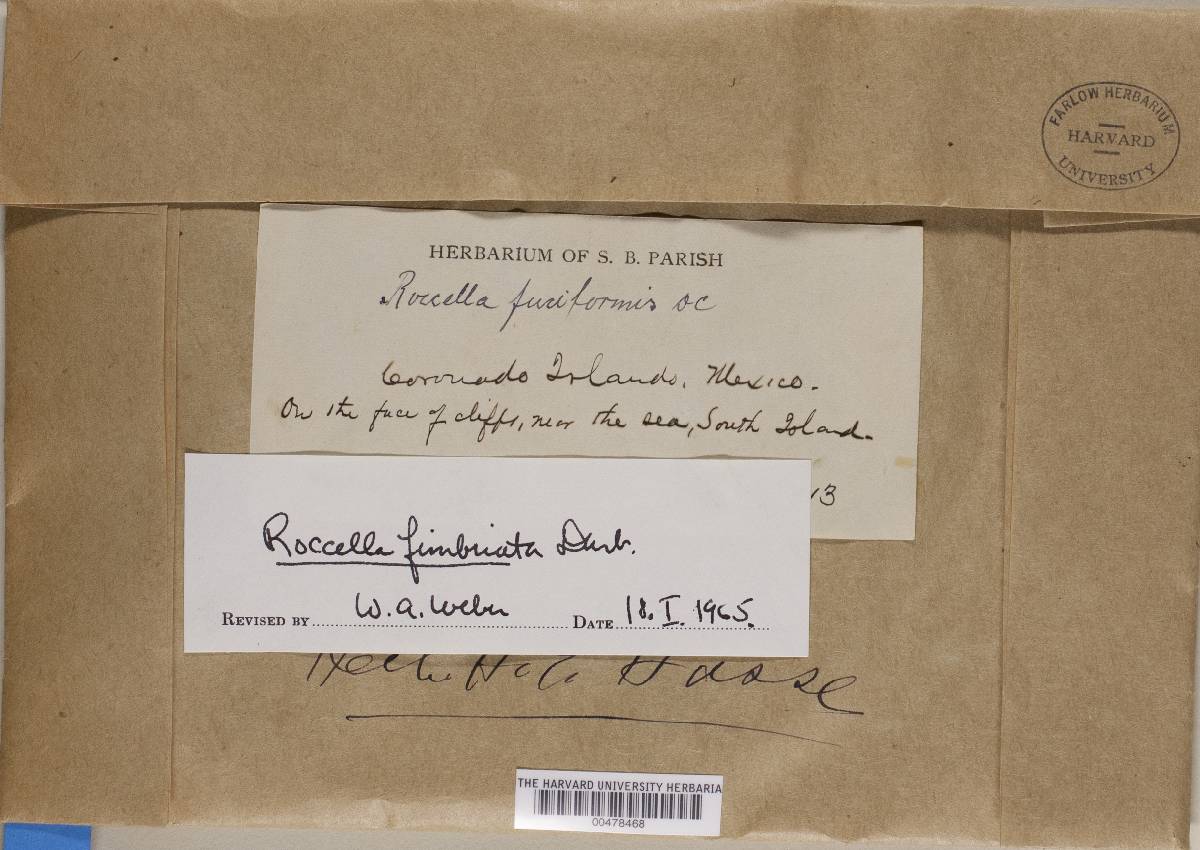 FARLOW HERBARIUM
HARVARD
UNIVERSITY
HERBARIUM OF S. B. PARISH
Roccella fuciformis DC
Coronado Islands, Mexico.
On the face of cliffs, near the sea, South Island.
13
Roccella fimbriata Darb.
REVISED BY W. A. Weber DATE 18. I. 1965.
Hasse
THE HARVARD UNIVERSITY HERBARIA
00478468